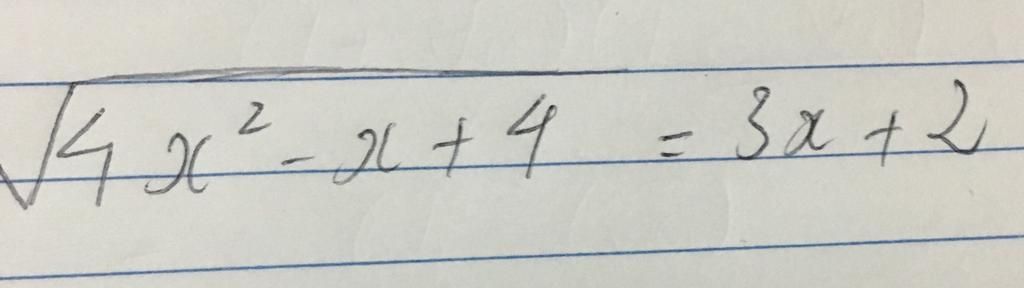 √(4x² - x + 4) = 3x + 2